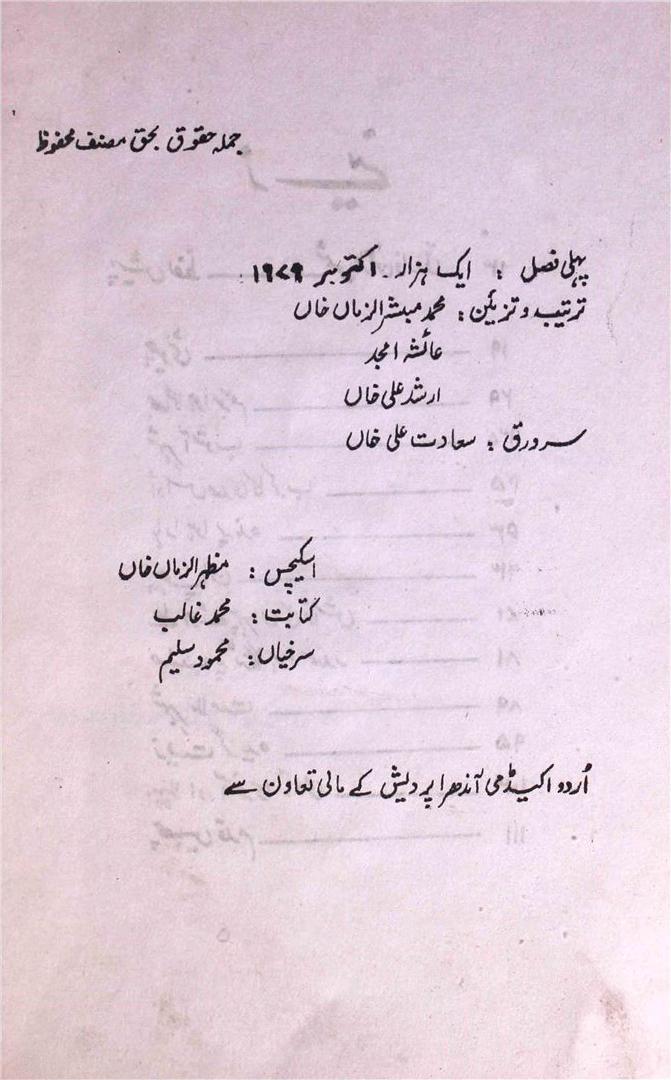 جملہ حقوق بحق مصنف محفوظ
پہلی فصل : ایک ہزار۔ اکتوبر ۱۹۷۹
ترتیب و تزئین : محمد مبشر الزماں خاں
عائشہ امجد
ارشد علی خاں
سرورق : سعادت علی خاں
اسکیچس : مظہر الزماں خاں
کتابت : محمد غالب
سرخیاں : محمود سلیم
اُردو اکیڈمی آندھرا پردیش کے مالی تعاون سے